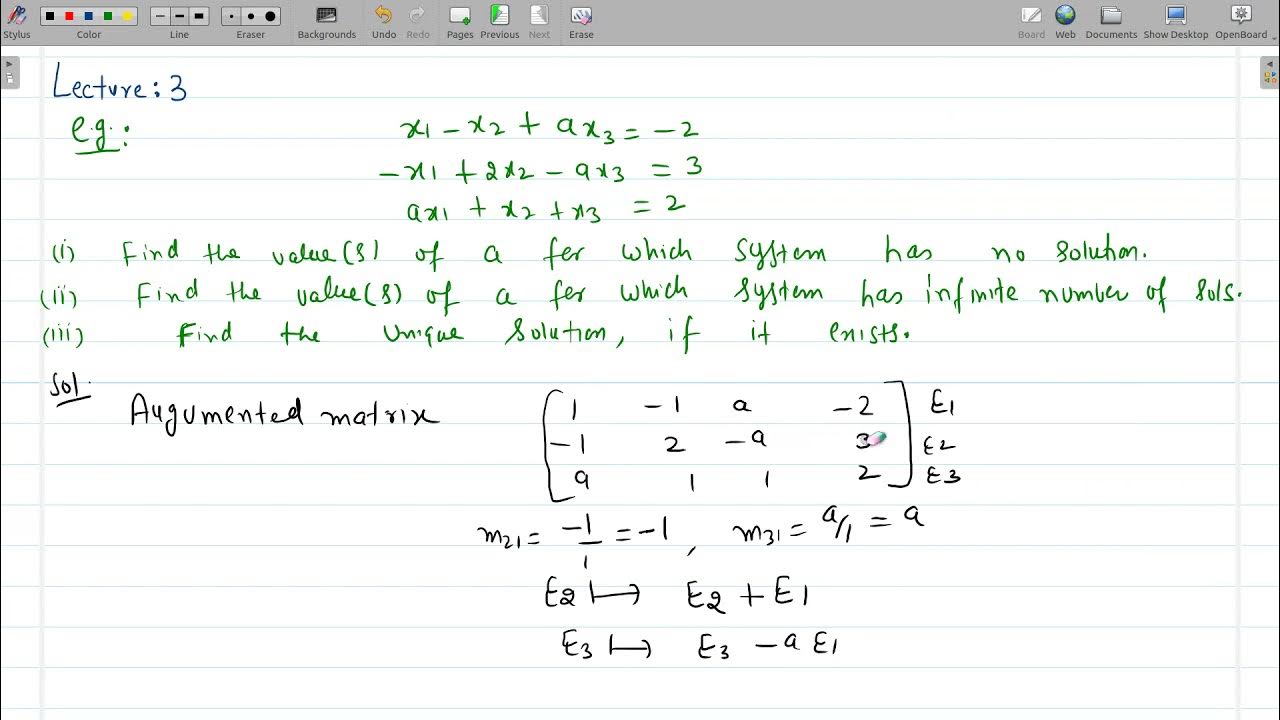 Stylus Color Line Eraser Backgrounds Undo Redo Pages Previous Next Erase Board Web Documents Show Desktop OpenBoard
Lecture: 3
e.g.:
x1 - x2 + ax3 = -2
-x1 + 2x2 - ax3 = 3
ax1 + x2 + x3 = 2
(i) Find the value(s) of a for which system has no solution.
(ii) Find the value(s) of a for which system has infinite number of sols.
(iii) Find the unique solution, if it exists.
Sol.
Augumented matrix
[ 1 -1 a -2 ] E1
[ -1 2 -a 3 ] E2
[ a 1 1 2 ] E3
m21 = -1/1 = -1, m31 = a/1 = a
E2 ⟼ E2 + E1
E3 ⟼ E3 - a E1